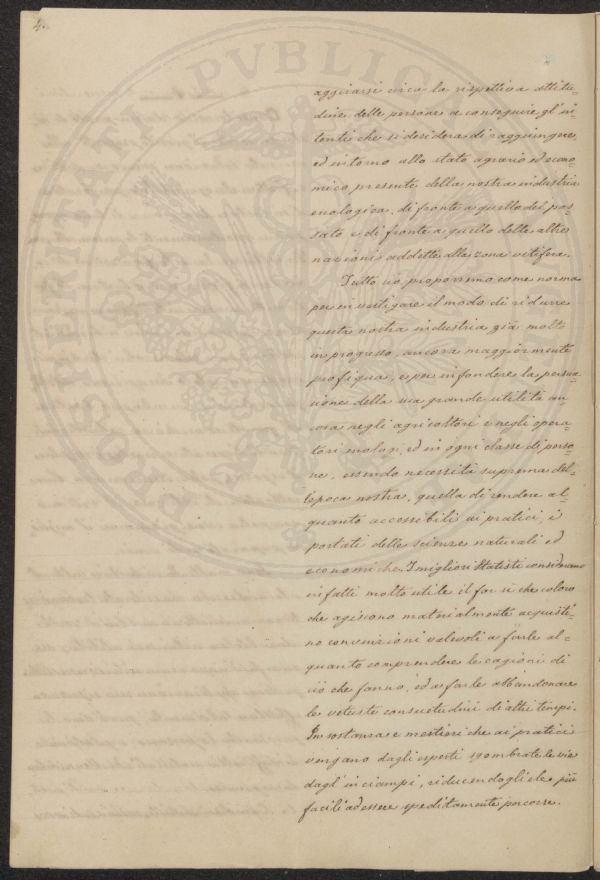 4.
PROSPERITATI PVBLICAE
aggirarsi circa la rispettiva attitu-
dine delle persone a conseguire gl'in-
tenti che si desidera di raggiungere,
ed intorno allo stato agrario ed econo-
mico presente della nostra industria
enologica, di fronte a quello del pas-
sato e di fronte a quello delle altre
nazioni addette alla zona vitifera.
Tutto ciò proporremo come norma
per investigare il modo di ridurre
questa nostra industria già molto
in progresso, ancora maggiormente
proficua, e per infondere la persua-
sione della sua grande utilità an-
cora negli agricoltori e negli opera-
tori ed in ogni classe di perso-
ne, essendo necessità suprema del-
l'epoca nostra, quella di rendere al-
quanto accessibili ai pratici, i
portati delle scienze naturali ed
economiche. I migliori Statisti considerano
infatti molto utile il far sì che coloro
che agiscono materialmente acquisti-
no convinzioni valevoli a farle al-
quanto comprendere le cagioni di
ciò che fanno, ed a farle abbandonare
le vetuste consuetudini di altri tempi.
In sostanza è mestieri che ai pratici
vengano dagli esperti sgombrate le vie
dagl'inciampi, riducendogliele più
facili ad essere speditamente percorse.